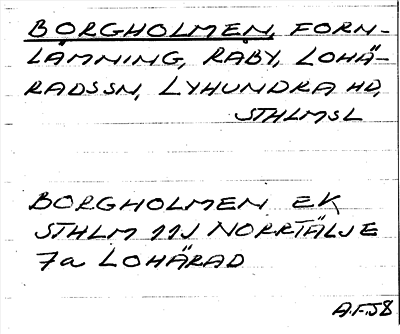 BORGHOLMEN, FORN-
LÄMNING, RÄBY, LOHÄ-
RADSSN, LYHUNDRA HD,
STHLMSL
BORGHOLMEN EK
STHLM 11J NORRTÄLJE
7a LOHÄRAD
A.F.58